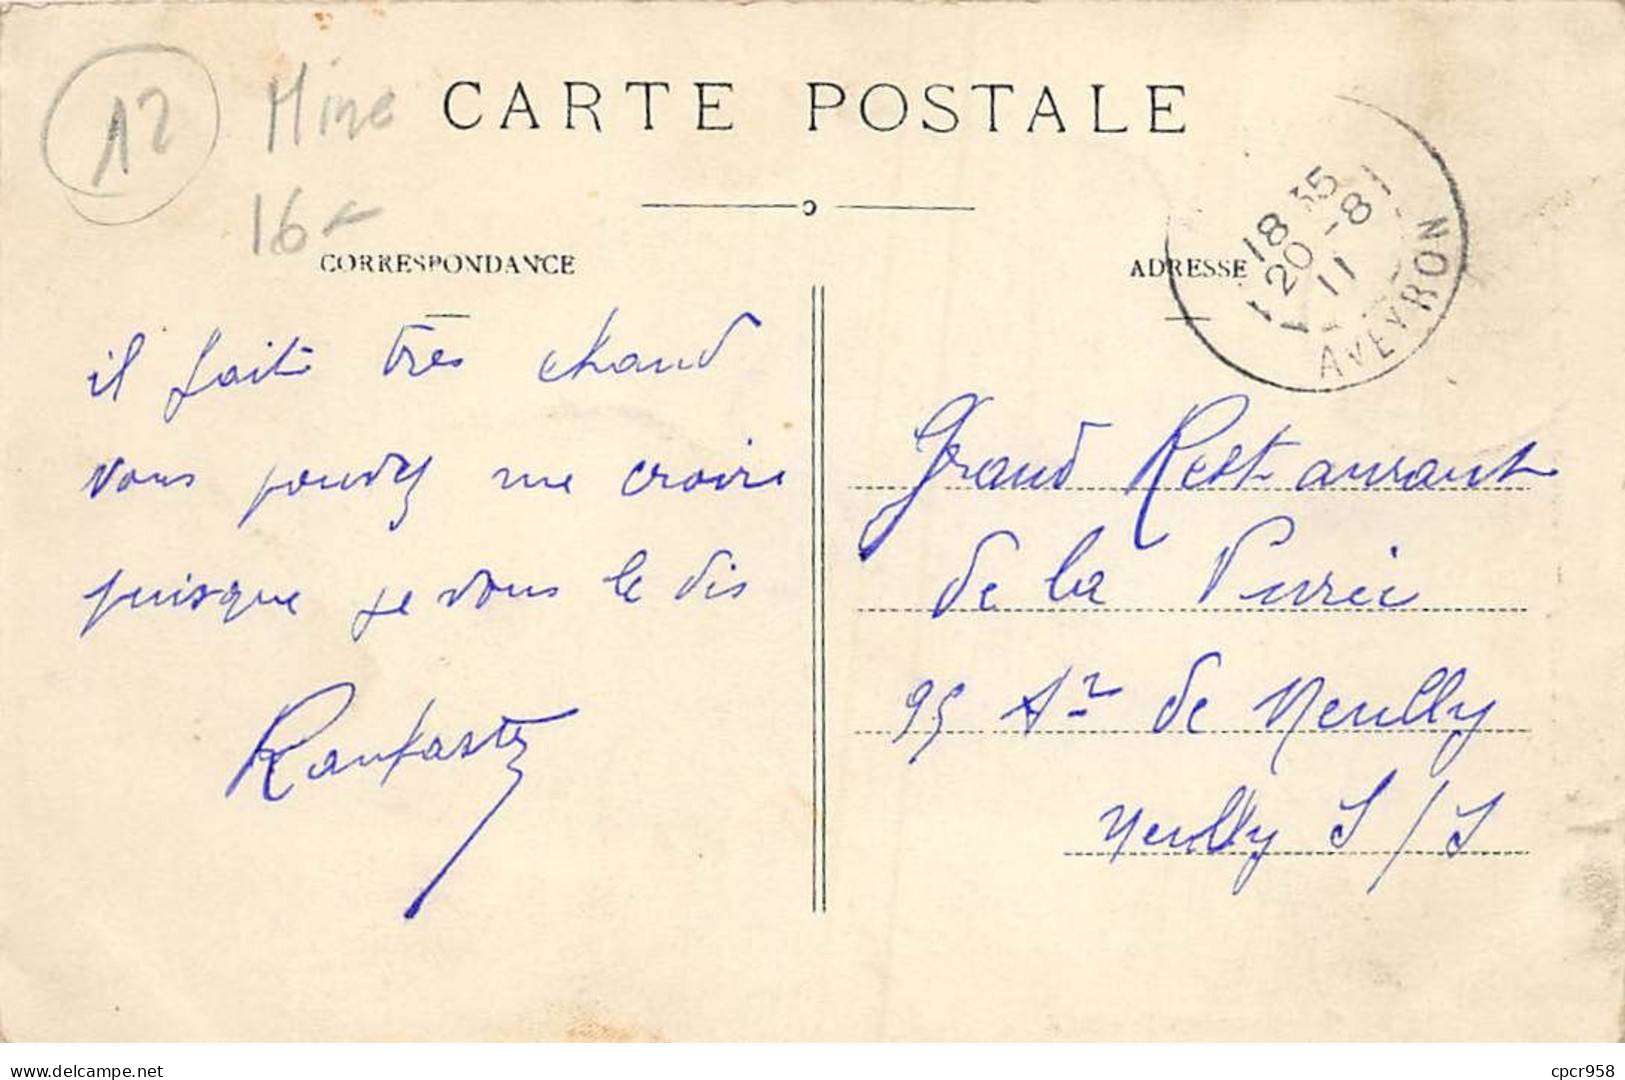 12 Mine
16
CARTE POSTALE
CORRESPONDANCE
il fait très chaud
vous pouvez me croire
puisque je vous le dis
ADRESSE
18 35
20 -8
11
AVEYRON
Grand Restaurant
de la
95 Ave de Neuilly
Neuilly S/S
cpcr958